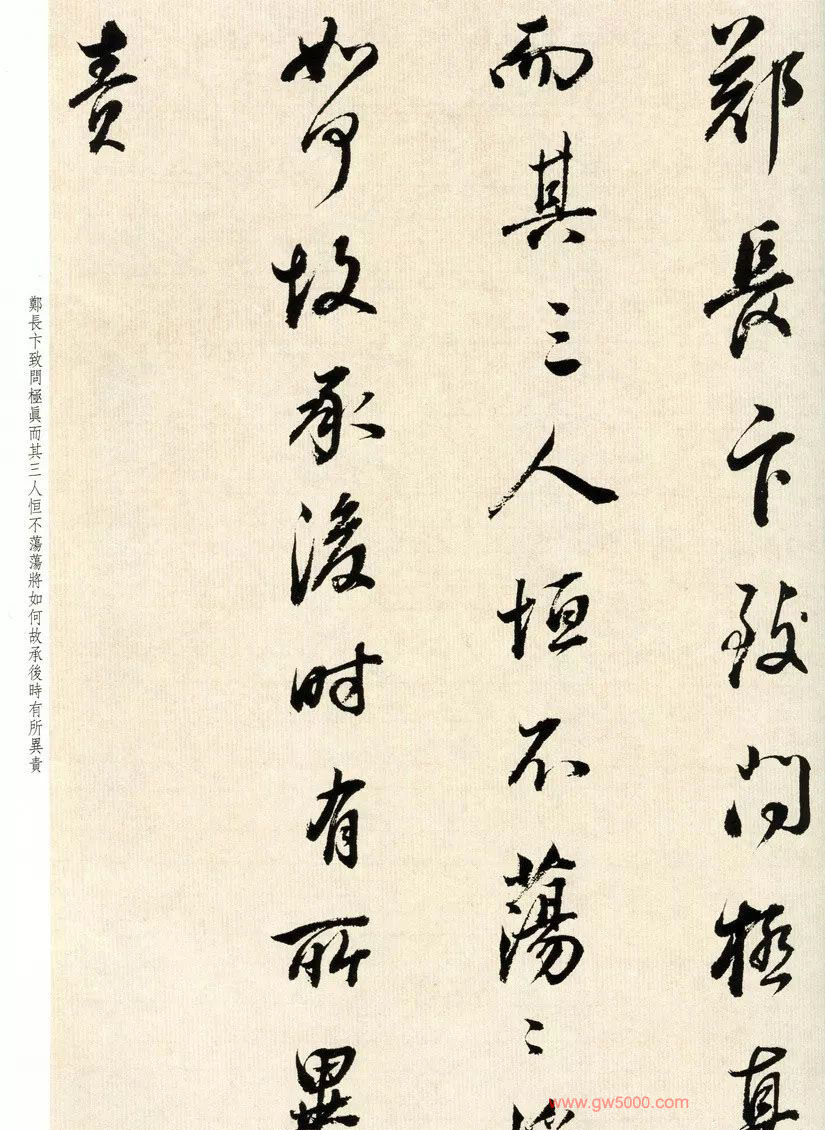 鄭長卞致問極真
而其三人恒不蕩〻將
如何故承後時有所異
責
鄭長卞致問極眞而其三人恒不蕩蕩將如何故承後時有所異責
www.gw5000.com